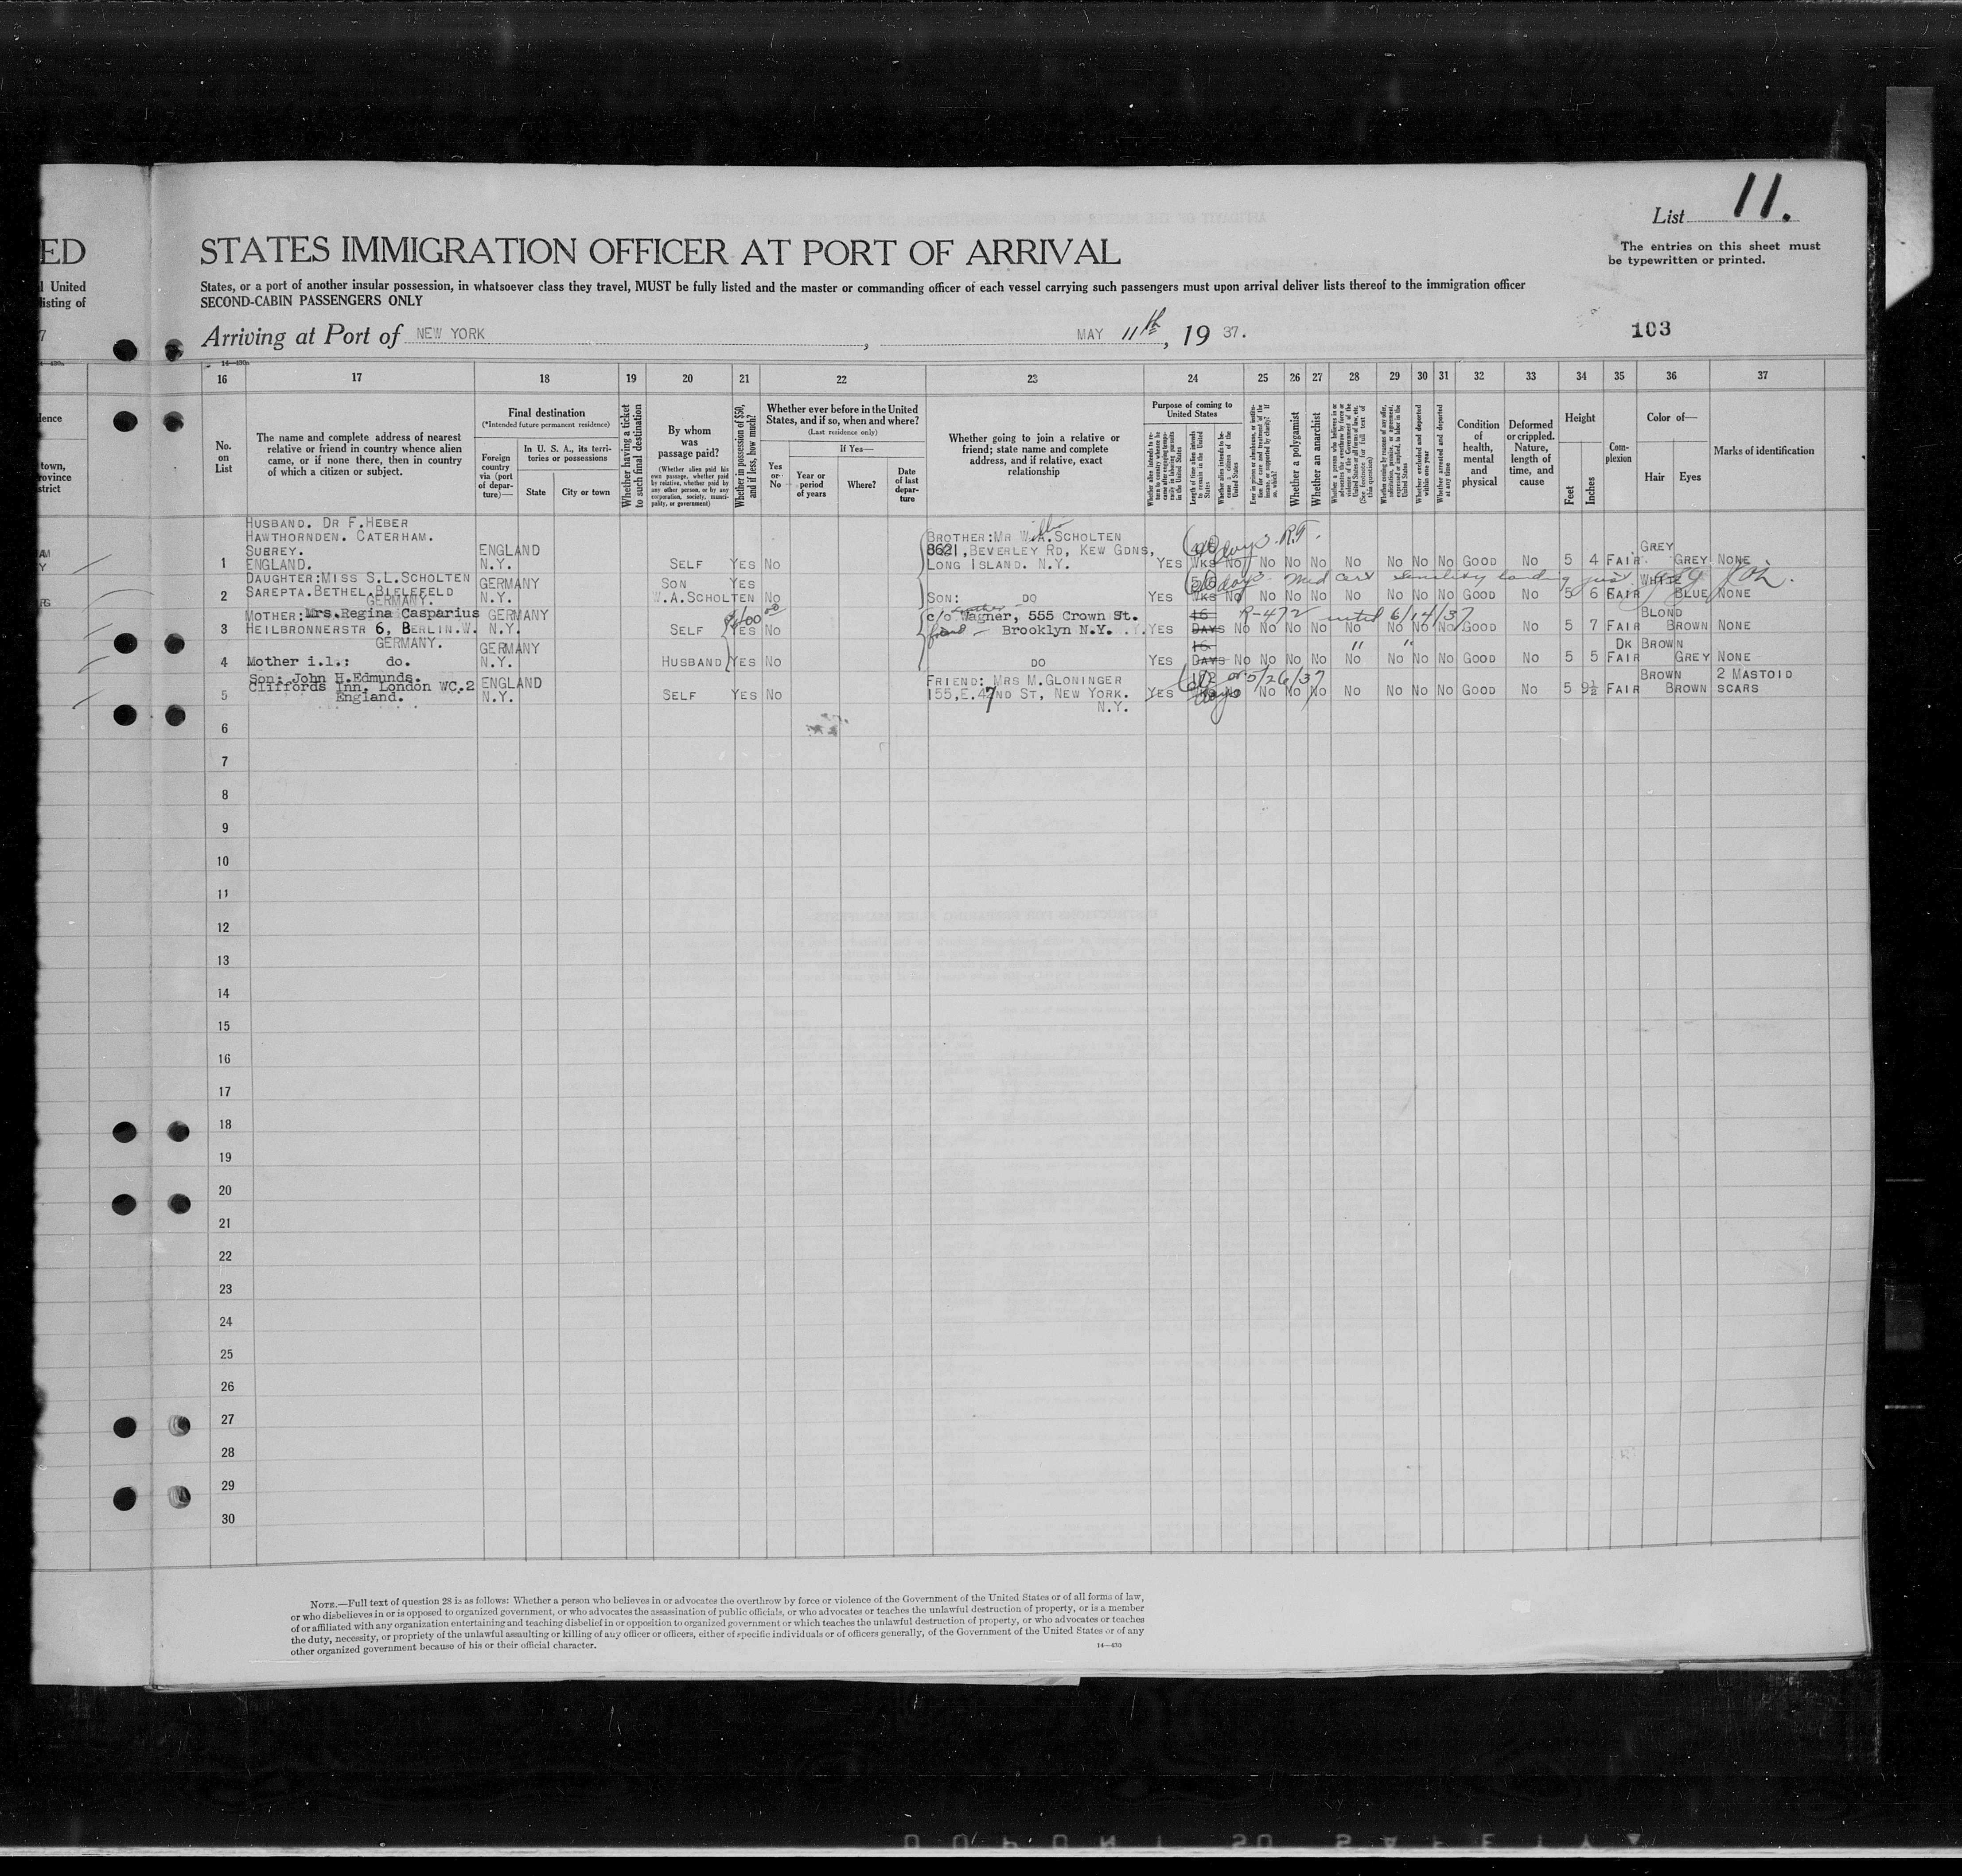 List 11.
The entries on this sheet must
be typewritten or printed.
ED
STATES IMMIGRATION OFFICER AT PORT OF ARRIVAL
l United
listing of
States, or a port of another insular possession, in whatsoever class they travel, MUST be fully listed and the master or commanding officer of each vessel carrying such passengers must upon arrival deliver lists thereof to the immigration officer
SECOND-CABIN PASSENGERS ONLY
Arriving at Port of NEW YORK, MAY 11th, 19 37.
103
16 17 18 19 20 21 22 23 24 25 26 27 28 29 30 31 32 33 34 35 36 37
No. on List
The name and complete address of nearest
relative or friend in country whence alien
came, or if none there, then in country
of which a citizen or subject.
Final destination
(*Intended future permanent residence)
Foreign country via (port of departure)—
In U. S. A., its territories or possessions
State
City or town
Whether having a ticket to such final destination
By whom was passage paid?
(Whether alien paid his own passage, whether paid by relative, whether paid by any other person, or by any corporation, society, municipality, or government)
Whether in possession of $50, and if less, how much?
Whether ever before in the United States, and if so, when and where?
(Last residence only)
Yes or No
If Yes—
Year or period of years
Where?
Date of last departure
Whether going to join a relative or
friend; state name and complete
address, and if relative, exact
relationship
Purpose of coming to United States
Whether alien intends to return to country whence he came after engaging temporarily in laboring pursuits in the United States
Length of time alien intends to remain in the United States
Whether alien intends to become a citizen of the United States
Ever in prison or almshouse, or institution for care and treatment of the insane, or supported by charity? If so, which?
Whether a polygamist
Whether an anarchist
Whether excluded and deported within one year
Whether arrested and deported at any time
Condition of health, mental and physical
Deformed or crippled. Nature, length of time, and cause
Height
Feet
Inches
Complexion
Color of—
Hair
Eyes
Marks of identification
HUSBAND. DR F.HEBER
HAWTHORNDEN. CATERHAM.
SURREY.
1 ENGLAND. ENGLAND N.Y. SELF YES NO BROTHER:MR W.A.SCHOLTEN
8621,BEVERLEY RD, KEW GDNS,
LONG ISLAND. N.Y. YES WKS NO days R.T. NO NO NO NO NO NO NO GOOD NO 5 4 FAIR GREY GREY NONE
DAUGHTER:MISS S.L.SCHOLTEN
2 SAREPTA.BETHEL.BIELEFELD
GERMANY. GERMANY N.Y. SON W.A.SCHOLTEN YES NO SON: DO YES WKS NO days Med Cert Senility NO NO NO NO NO NO NO GOOD NO 5 6 FAIR WHITE BLUE NONE
MOTHER:Mrs.Regina Casparius
3 HEILBRONNERSTR 6, BERLIN.W.
GERMANY. GERMANY N.Y. SELF YES NO c/o Wagner, 555 Crown St.
Brooklyn N.Y. YES 16 DAYS R-472 until 6/14/37 NO NO NO NO NO NO NO NO GOOD NO 5 7 FAIR BLOND BROWN NONE
4 Mother i.l.: do. GERMANY N.Y. HUSBAND YES NO DO YES 16 DAYS NO NO NO NO NO NO NO NO " " GOOD NO 5 5 FAIR DK BROWN GREY NONE
Son: John H.Edmunds.
5 Cliffords Inn. London WC.2
England. ENGLAND N.Y. SELF YES NO FRIEND: MRS M.GLONINGER
155,E.47ND ST, NEW YORK.
N.Y. YES days 5/26/37 NO NO NO NO NO NO NO GOOD NO 5 9½ FAIR BROWN BROWN 2 MASTOID
SCARS
6
7
8
9
10
11
12
13
14
15
16
17
18
19
20
21
22
23
24
25
26
27
28
29
30
NOTE.—Full text of question 28 is as follows: Whether a person who believes in or advocates the overthrow by force or violence of the Government of the United States or of all forms of law,
or who disbelieves in or is opposed to organized government, or who advocates the assassination of public officials, or who advocates or teaches the unlawful destruction of property, or is a member
of or affiliated with any organization entertaining and teaching disbelief in or opposition to organized government or which teaches the unlawful destruction of property, or who advocates or teaches
the duty, necessity, or propriety of the unlawful assaulting or killing of any officer or officers, either of specific individuals or of officers generally, of the Government of the United States or of any
other organized government because of his or their official character.
14—430